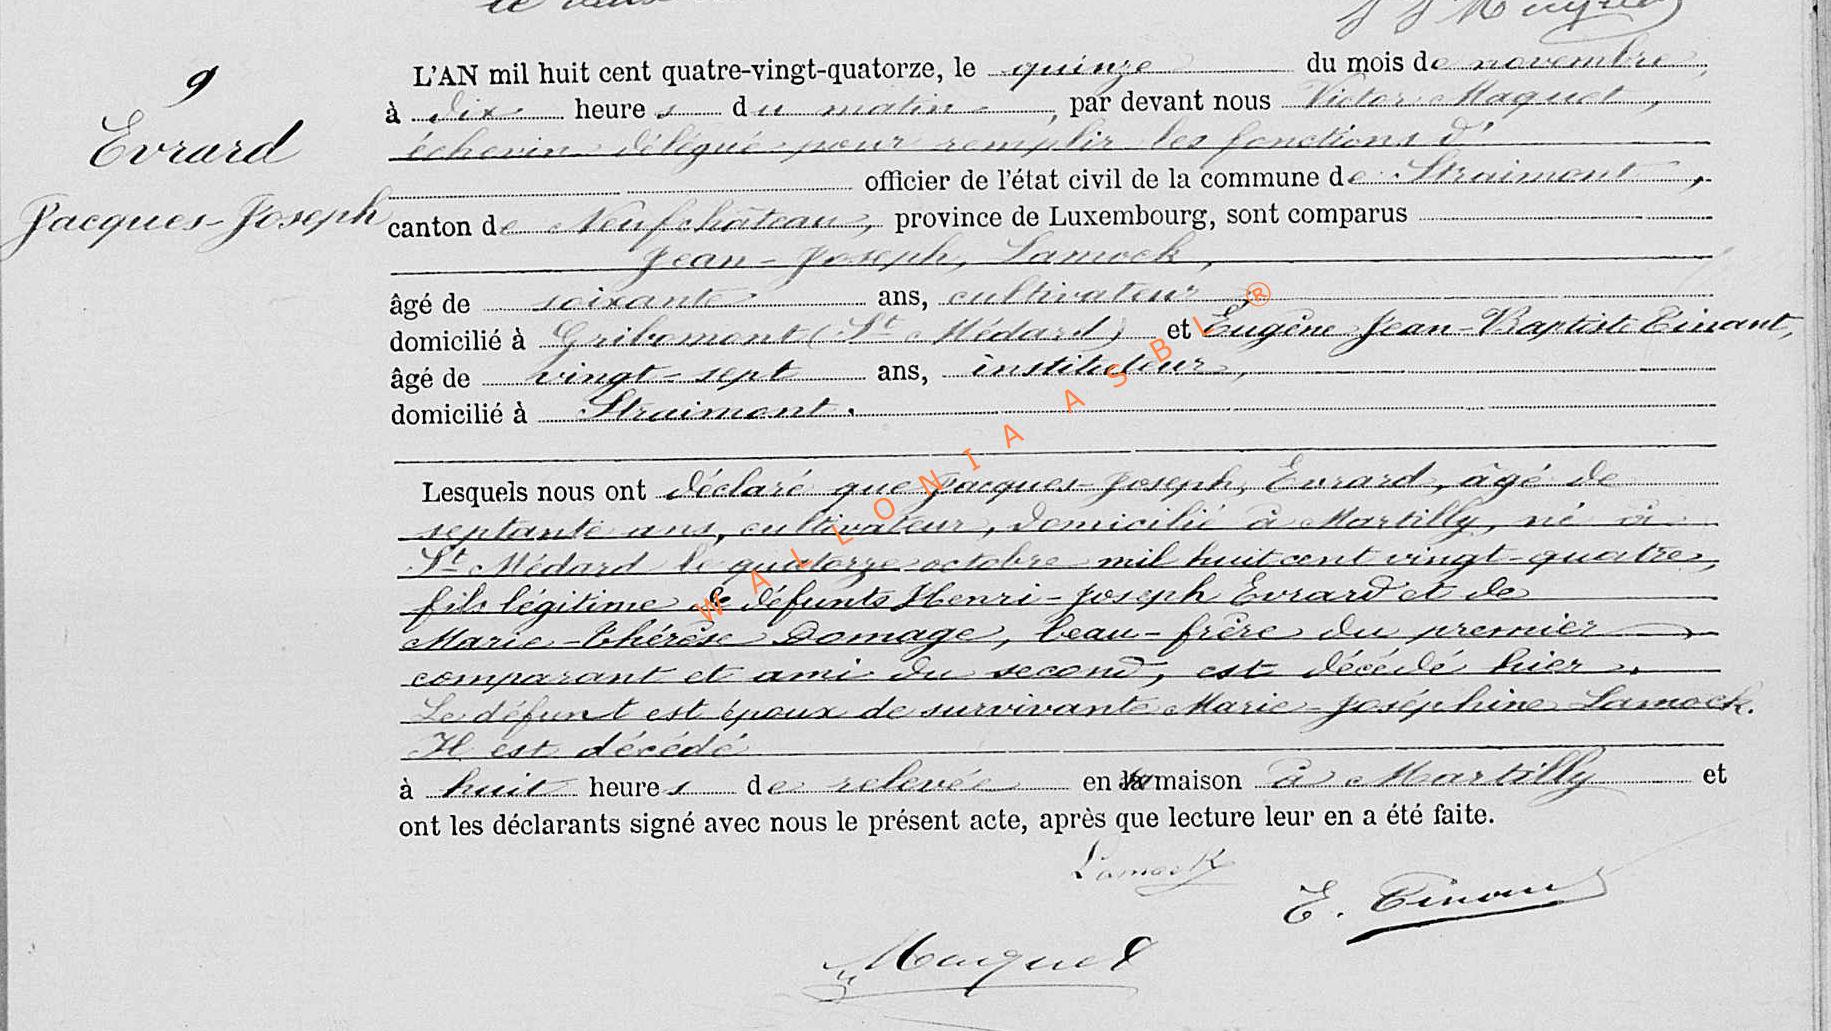 9
Evrard
Jacques-Joseph
L'AN mil huit cent quatre-vingt-quatorze, le quinze du mois de novembre,
à dix heures du matin, par devant nous Victor Maquet,
échevin délégué pour remplir les fonctions d'
officier de l'état civil de la commune de Straimont,
canton de Neufchâteau, province de Luxembourg, sont comparus
Jean-Joseph, Lamock,
âgé de soixante ans, cultivateur,
domicilié à Gribomont (St Médard) et Eugène Jean-Baptiste Tinant,
âgé de vingt-sept ans, instituteur,
domicilié à Straimont.
Lesquels nous ont déclaré que Jacques-Joseph, Evrard, âgé de
septante ans, cultivateur, domicilié à Martilly, né à
St Médard le quatorze octobre mil huit cent vingt-quatre,
fils légitime de défunts Henri-Joseph Evrard et de
Marie-Thérèse Domage, beau-frère du premier
comparant et ami du second, est décédé hier.
Le défunt est époux de survivante Marie-Joséphine Lamock.
Il est décédé
à huit heures de relevée en sa maison à Martilly et
ont les déclarants signé avec nous le présent acte, après que lecture leur en a été faite.
Lamock
E. Tinant
Maquet
WALLONIA ASBL ®